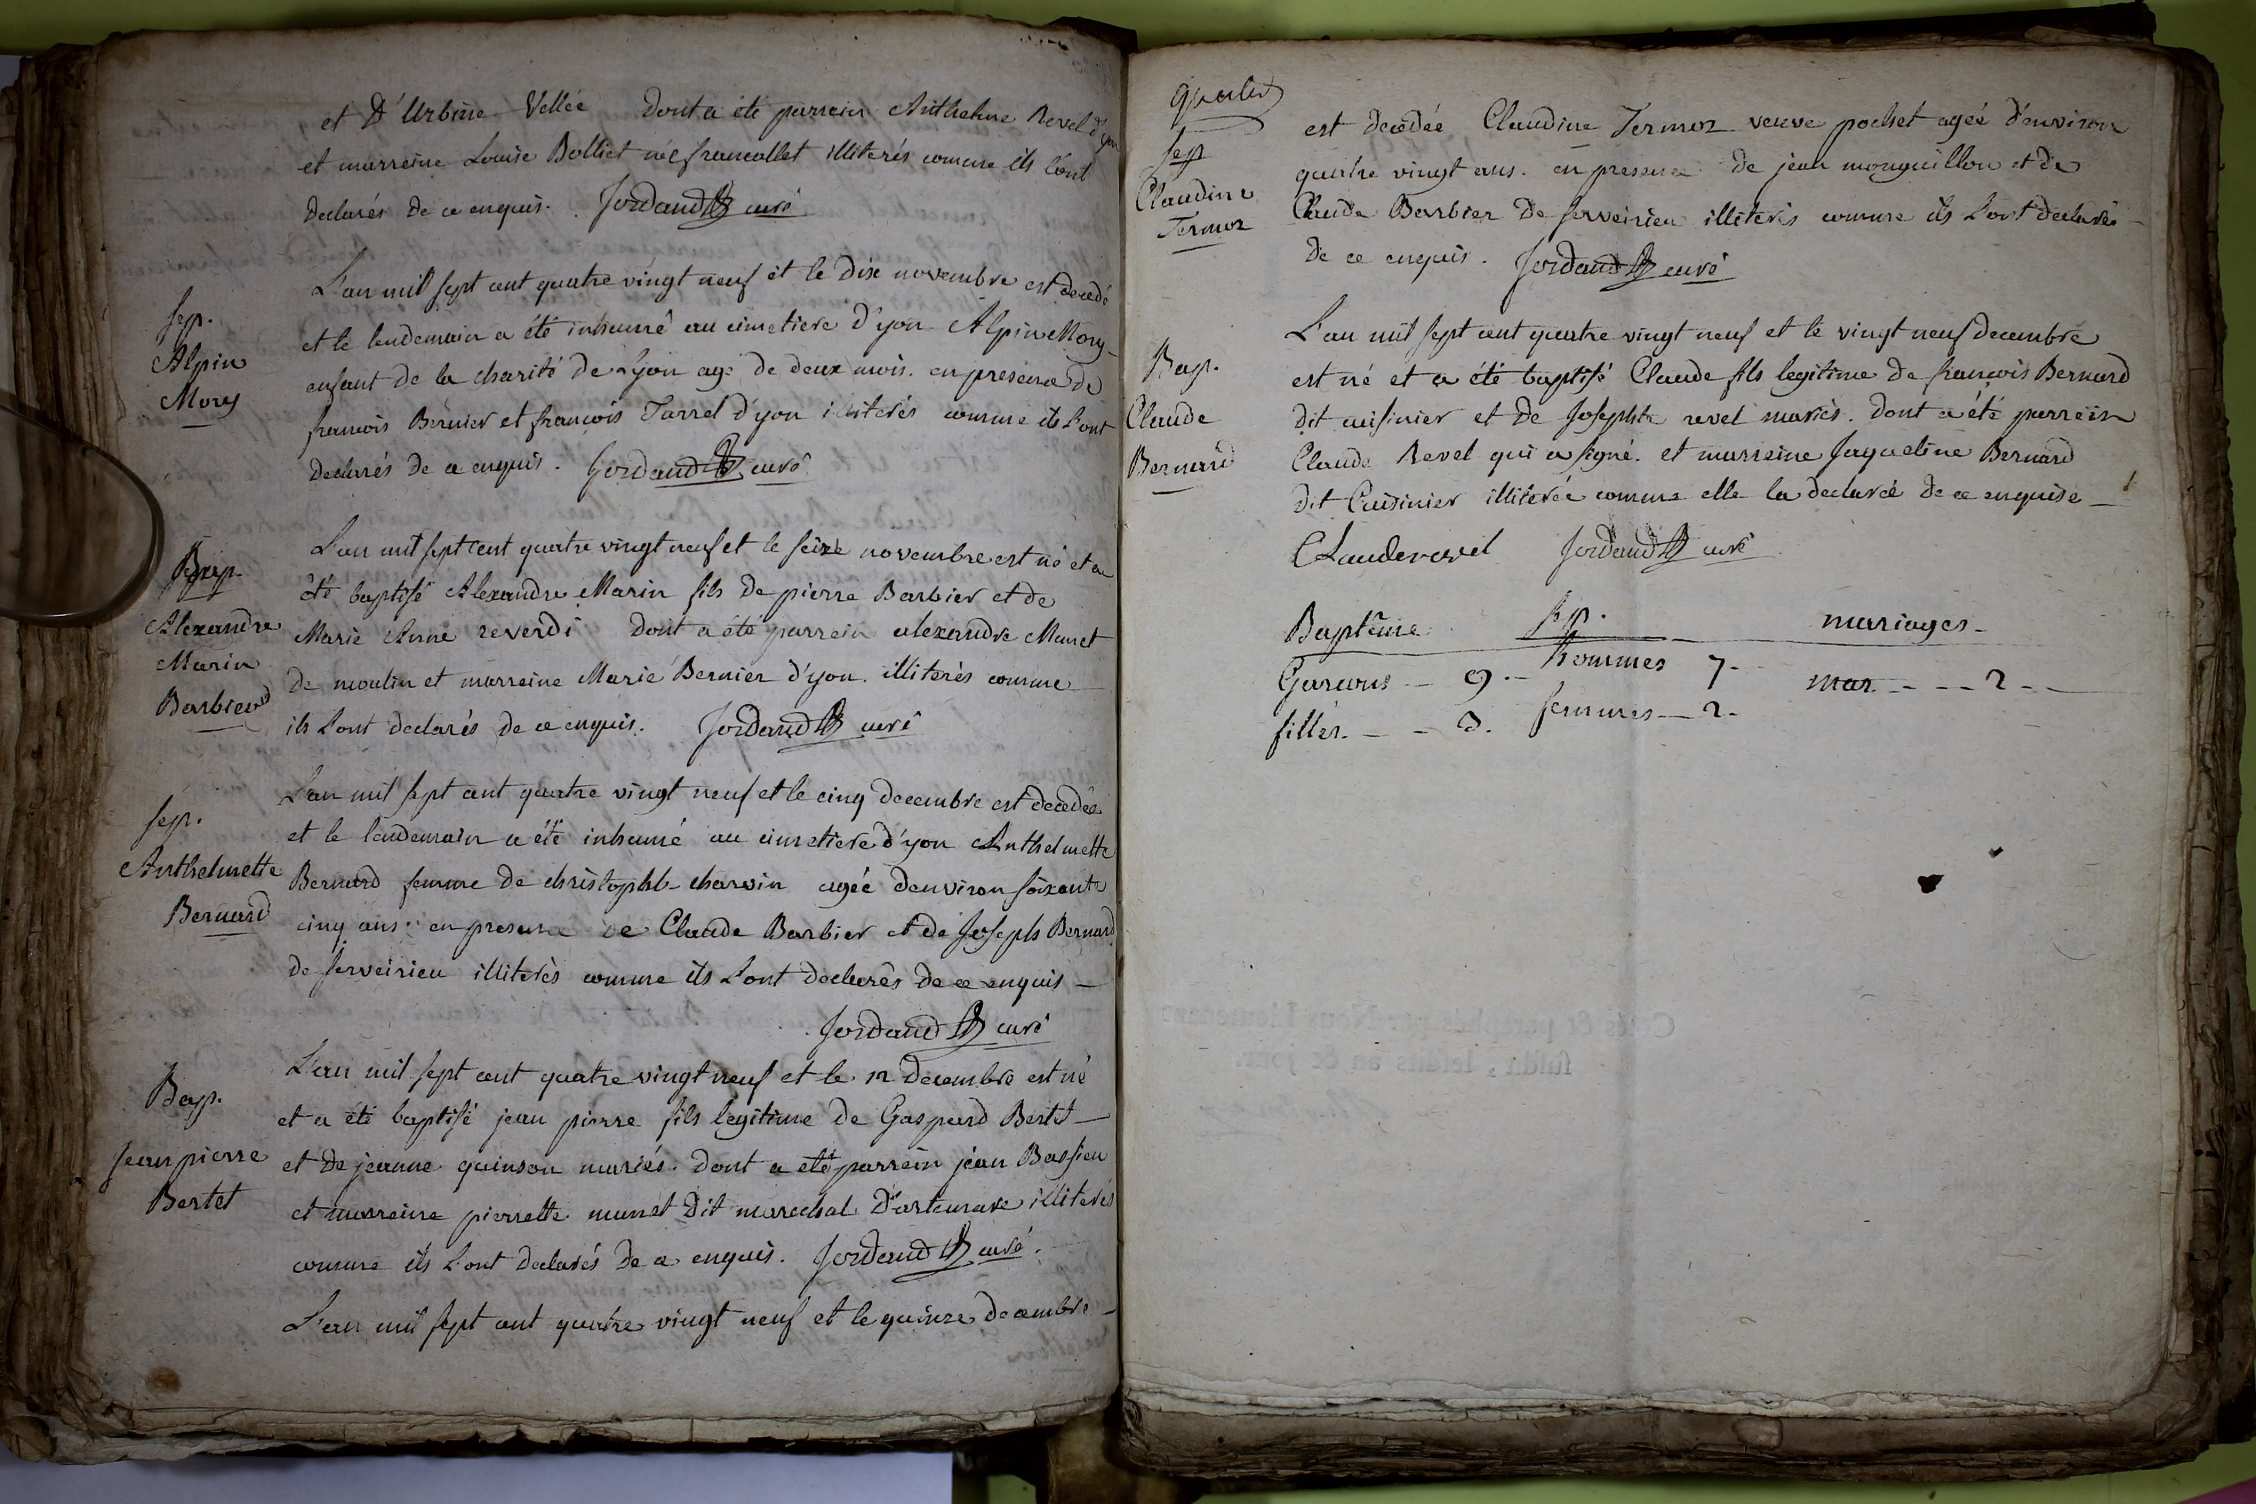 et D'Urbine Vellée dont a été parrein Anthelme Revel d'yon
et marreine Louise Bolliet née francallet illiterés comme ils L'ont
declarés de ce enquis. Jordand curé
Sep.
Alpin
Mory
L'an mil sept cent quatre vingt neuf et le dix novembre est decedé
et le lendemain a été inhumé au cimetiere d'yon Alpin Mory
enfant de la charité de Lyon agé de deux mois. en presence de
francois Bernier et francois Tarrel d'yon illiterés comme ils L'ont
declarés de ce enquis. Jordand curé
Bap.
Alexandre
Marin
Barbier
L'an mil sept cent quatre vingt neuf et le seize novembre est né et a
été baptisé Alexandre Marin fils de pierre Barbier et de
Marie Anne reverdi dont a été parrein alexandre Munet
de moulin et marreine Marie Bernier d'yon. illiterés comme
ils L'ont declarés de ce enquis. Jordand curé
Sep.
Anthelmette
Bernard
L'an mil sept cent quatre vingt neuf et le cinq decembre est decedée
et le lendemain a été inhumé au cimetiere d'yon Anthelmette
Bernard femme de christophle charvin agée d'environ soixante
cinq ans. en presence de Claude Barbier et de Joseph Bernard
de serveirieu illiterés comme ils L'ont declarés de ce enquis
Jordand curé
Bap.
Jean pierre
Bertet
L'an mil sept cent quatre vingt neuf et le 12 decembre est né
et a été baptisé jean pierre fils legitime de Gaspard Bertet
et de jeanne quinson mariés. dont a été parrein jean Bassieu
et marreine pierrette munet dit marechal D'artemare illiterés
comme ils L'ont declarés de ce enquis. Jordand curé.
L'an mil sept cent quatre vingt neuf et le quinze decembre
Sep
Claudine
Termoz
est decedée Claudine Termoz veuve pochet agée d'environ
quatre vingt ans. en presence de jean monguillon et de
Claude Barbier de serveirieu illiterés comme ils L'ont declarés
de ce enquis. Jordand curé
Bap.
Claude
Bernard
L'an mil sept cent quatre vingt neuf et le vingt neuf decembre
est né et a été baptisé Claude fils legitime de françois Bernard
dit cuisinier et de Josephte revel mariés. dont a été parrein
Claude Revel qui a signé. et marreine Jaqueline Bernard
dit Cuisinier illiterée comme elle la declarée de ce enquise
CLaude revel Jordand curé
Baptême. Sep. mariages
Garcons 9. hommes 7 mar 2
filles 3. femmes 2